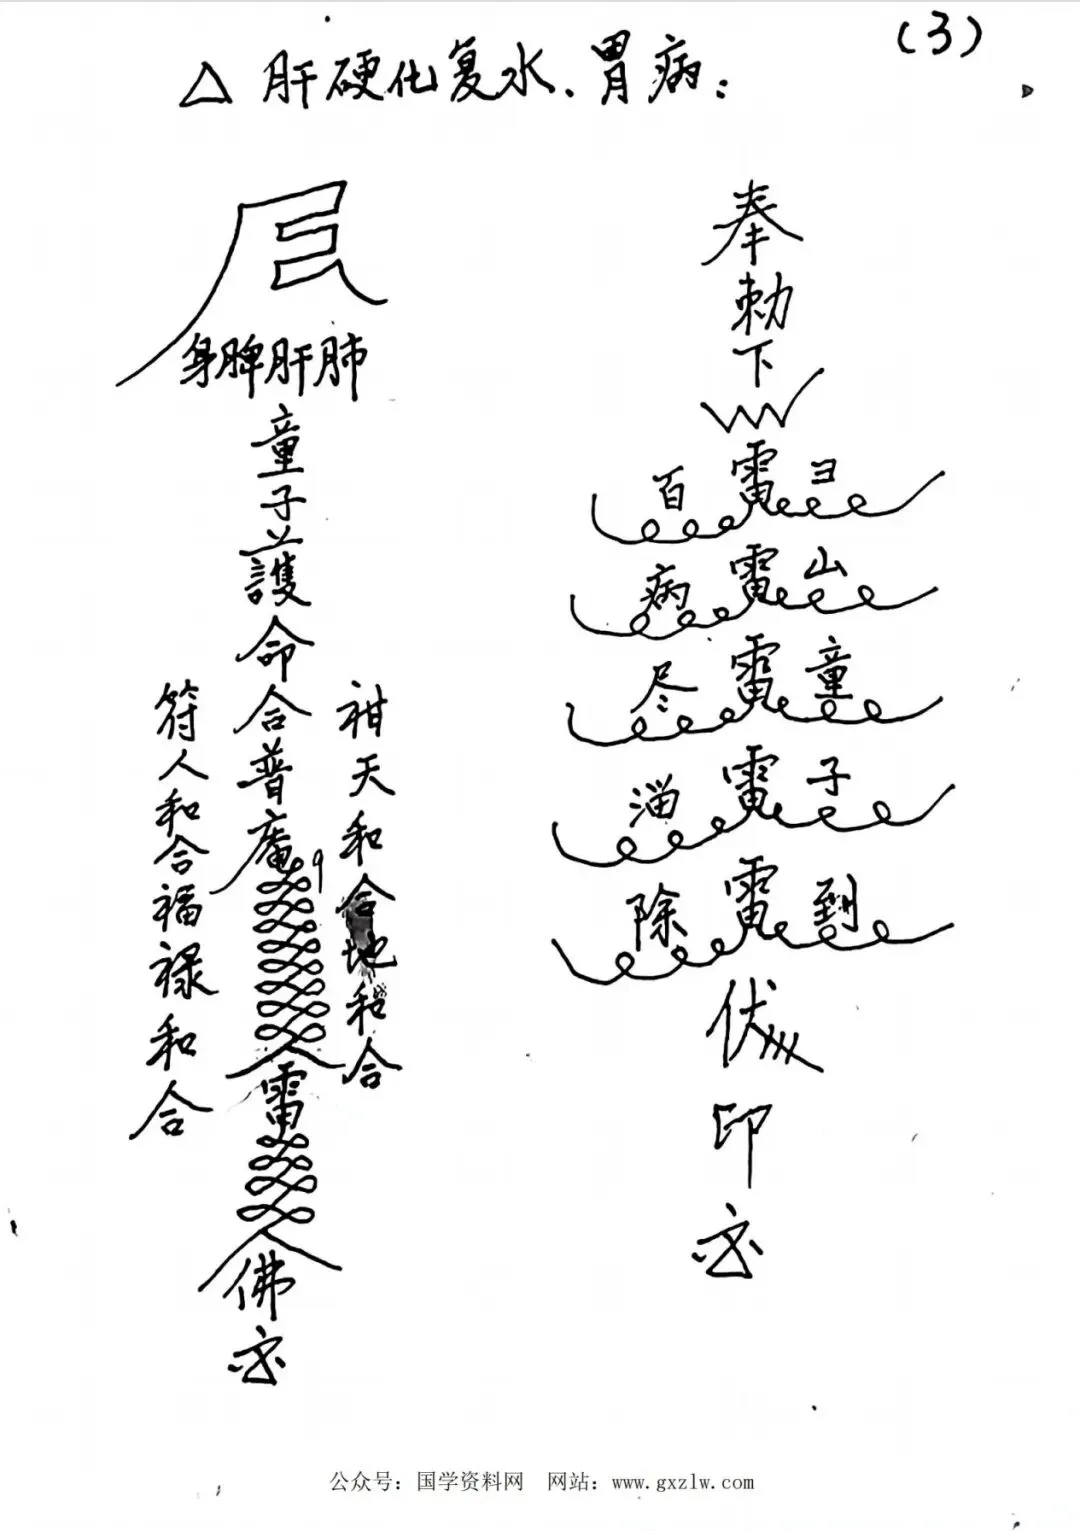 (3)
△肝硬化复水、胃病：
身脾肝肺
童子
護
命
合普庵
符人和合福禄和合
神天和合地和合
雷
佛
奉勅下
百雷ヨ
病雷山
尽雷童
淄雷子
除雷到
伏
印
公众号：国学资料网 网站：www.gxzlw.com